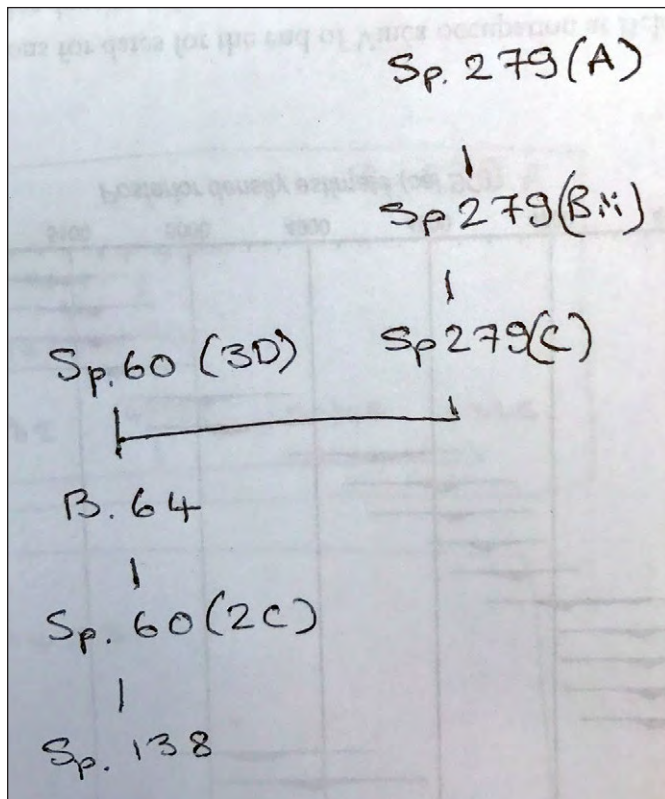 Sp. 279(A)
Sp 279(Bii)
Sp 279(C)
Sp. 60 (3D)
B. 64
Sp. 60(2C)
Sp. 138